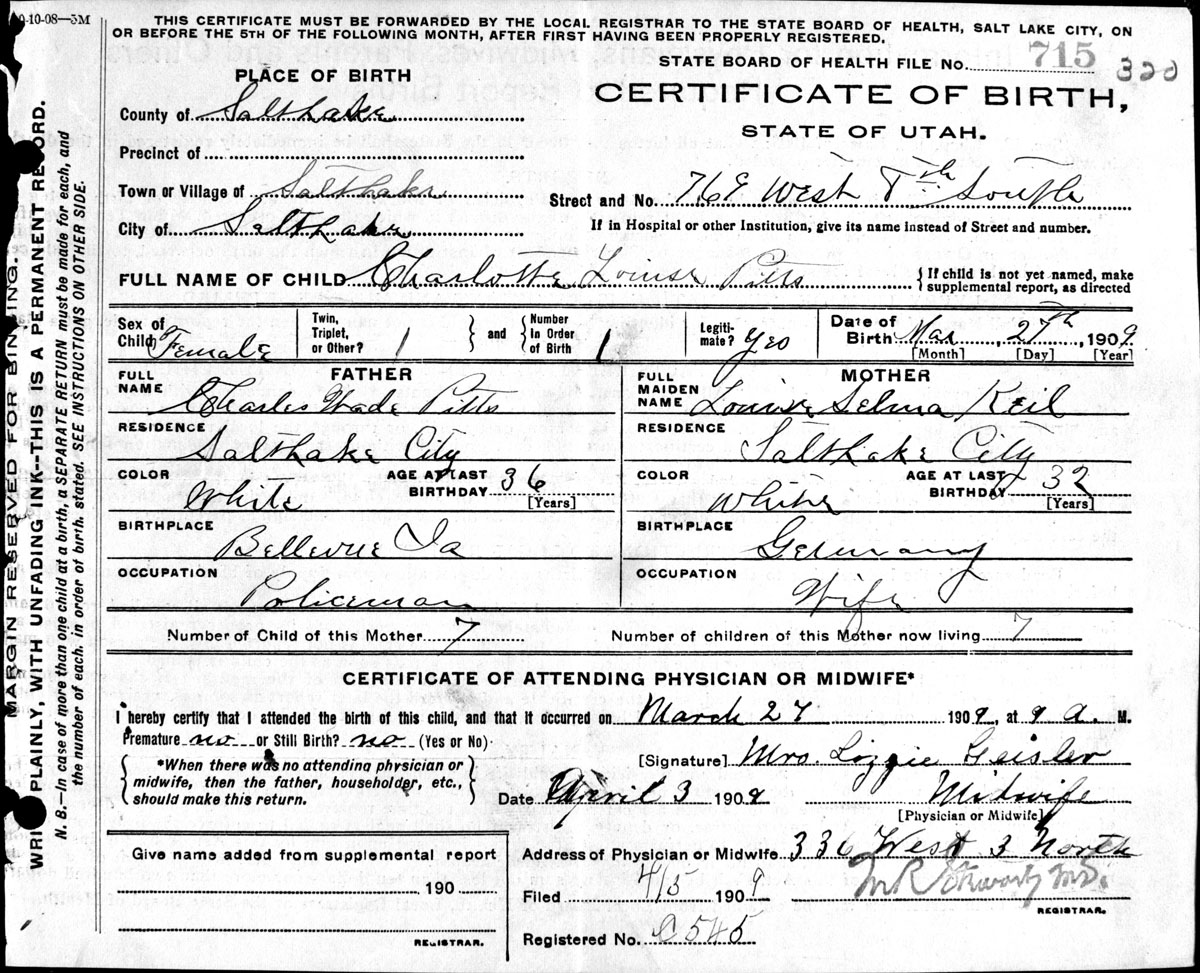 0-10-08—3M
THIS CERTIFICATE MUST BE FORWARDED BY THE LOCAL REGISTRAR TO THE STATE BOARD OF HEALTH, SALT LAKE CITY, ON
OR BEFORE THE 5TH OF THE FOLLOWING MONTH, AFTER FIRST HAVING BEEN PROPERLY REGISTERED.
STATE BOARD OF HEALTH FILE No. 715 320
PLACE OF BIRTH
CERTIFICATE OF BIRTH,
STATE OF UTAH.
County of Salt Lake
Precinct of
Town or Village of Salt Lake
City of Salt Lake
Street and No. West 8th South
If in Hospital or other Institution, give its name instead of Street and number.
FULL NAME OF CHILD Charlotte Louise Pitts { If child is not yet named, make supplemental report, as directed
Sex of Child Female Twin, Triplet, or Other? 1 } and { Number In Order of Birth 1 Legiti-mate? Yes Date of Birth Mar, 27th, 1909
[Month] [Day] [Year]
FULL NAME FATHER
Charles Wade Pitts
RESIDENCE
Salt Lake City
COLOR White AGE AT LAST BIRTHDAY 36 [Years]
BIRTHPLACE
Bellevue Ia
OCCUPATION
Policeman
FULL MAIDEN NAME MOTHER
Louise Selma Keil
RESIDENCE
Salt Lake City
COLOR White AGE AT LAST BIRTHDAY 32 [Years]
BIRTHPLACE
Germany
OCCUPATION
Wife
Number of Child of this Mother 7 Number of children of this Mother now living 7
CERTIFICATE OF ATTENDING PHYSICIAN OR MIDWIFE*
I hereby certify that I attended the birth of this child, and that it occurred on March 27 1909, at 9 a. M.
Premature no or Still Birth? no (Yes or No)
{ *When there was no attending physician or
midwife, then the father, householder, etc.,
should make this return. }
[Signature] Mrs. Lizzie Geisler
Date April 3 1909 Midwife
[Physician or Midwife]
Give name added from supplemental report
190
REGISTRAR.
Address of Physician or Midwife 336 West 3 North
Filed 4/5 1909 M.D.
REGISTRAR.
Registered No. C 545
MARGIN RESERVED FOR BINDING.
WRITE PLAINLY, WITH UNFADING INK--THIS IS A PERMANENT RECORD.
N. B.—In case of more than one child at a birth, a SEPARATE RETURN must be made for each, and
the number of each, in order of birth, stated. SEE INSTRUCTIONS ON OTHER SIDE.